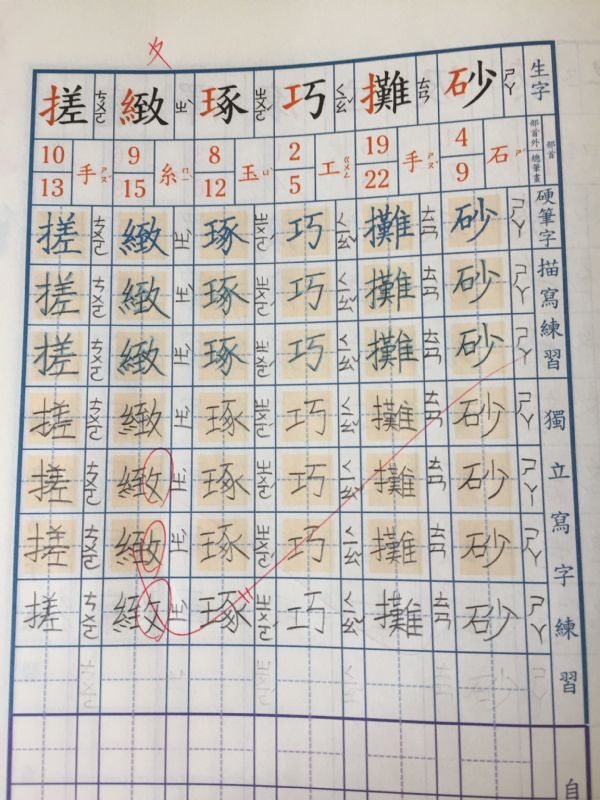 生字
部首
部首外
總筆畫
硬筆字描寫練習
獨立寫字練習
自
砂 ㄕㄚ
4
9
石 ㄕˊ
砂 ㄕㄚ
砂 ㄕㄚ
砂 ㄕㄚ
砂 ㄕㄚ
砂 ㄕㄚ
砂 ㄕㄚ
砂 ㄕㄚ
攤 ㄊㄢ
19
22
手 ㄕㄡˇ
攤 ㄊㄢ
攤 ㄊㄢ
攤 ㄊㄢ
攤 ㄊㄢ
攤 ㄊㄢ
攤 ㄊㄢ
攤 ㄊㄢ
巧 ㄑㄧㄠˇ
2
5
工 ㄍㄨㄥ
巧 ㄑㄧㄠˇ
巧 ㄑㄧㄠˇ
巧 ㄑㄧㄠˇ
巧 ㄑㄧㄠˇ
巧 ㄑㄧㄠˇ
巧 ㄑㄧㄠˇ
巧 ㄑㄧㄠˇ
琢 ㄓㄨㄛˊ
8
12
玉 ㄩˋ
琢 ㄓㄨㄛˊ
琢 ㄓㄨㄛˊ
琢 ㄓㄨㄛˊ
琢 ㄓㄨㄛˊ
琢 ㄓㄨㄛˊ
琢 ㄓㄨㄛˊ
琢 ㄓㄨㄛˊ
緻 ㄓˋ
9
15
糸 ㄇㄧˋ
緻 ㄓˋ
緻 ㄓˋ
緻 ㄓˋ
緻 ㄓˋ
緻 ㄓˋ
緻 ㄓˋ
緻 ㄓˋ
搓 ㄘㄨㄛ
10
13
手 ㄕㄡˇ
搓 ㄘㄨㄛ
搓 ㄘㄨㄛ
搓 ㄘㄨㄛ
搓 ㄘㄨㄛ
搓 ㄘㄨㄛ
搓 ㄘㄨㄛ
搓 ㄘㄨㄛ